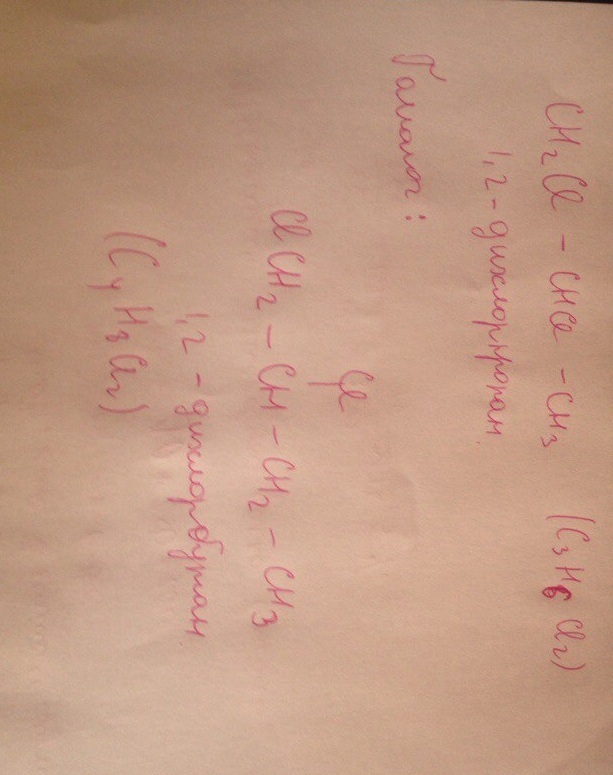 CH₂Cl – CHCl – CH₃ (C₃H₆Cl₂)
1,2 - дихлорпропан
Гомолог:
Cl
ClCH₂ – CH – CH₂ – CH₃
1,2 - дихлорбутан
(C₄H₈Cl₂)